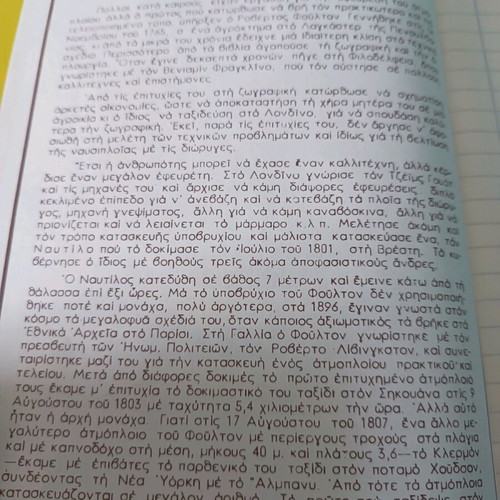 Πολλοί κατά καιρούς
πλοίου ἀλλά ὁ πρῶτος πού κατώρθωσε νά βρῇ τόν πρακτικώτερο
τελειοποιημένο τύπο, ὑπῆρξεν ὁ Ροβέρτος Φούλτον Γεννήθηκε στίς
Νοεμβρίου τοῦ 1765, σ' ἕνα ἀγρόκτημα στό Λαγκάστερ τῆς Πενσυλ
νίας κι ἀπό τά μικρά του χρόνια ἔδειχνε μιά ἰδιαίτερη κλίση στά τεχνικά
σχέδια Περισσότερο ἀπό τά βιβλία ἀγαποῦσε τή ζωγραφική καί τήν
πλουργία. Ὅταν ἔγινε δεκαεπτά χρονῶν, πῆγε στή Φιλαδέλφεια, ὅπου
γνωρίστηκε μέ τόν Βενιαμίν Φραγκλῖνο, πού τόν σύστησε σέ πολλούς
καλλιτέχνες καί ἐπιστήμονες.
Ἀπό τίς ἐπιτυχίες του στή ζωγραφική κατώρθωσε νά σχηματίσῃ
ἀρκετές οἰκονομίες, ὥστε νά ἀποκαταστήσῃ τή χήρα μητέρα του σέ μιά
ἀγροικία κι ὁ ἴδιος νά ταξιδεύσῃ στό Λονδῖνο, γιά νά σπουδάσῃ καλύ
τερα τήν ζωγραφική. Ἐκεῖ, παρά τίς ἐπιτυχίες του, δέν ἄργησε ν' ἀφο
σιωθῇ στή μελέτη τῶν τεχνικῶν προβλημάτων καί ἰδίως γιά τή βελτίωση
τῆς ναυσιπλοΐας μέ τίς διώρυγες.
Ἔτσι ἡ ἀνθρωπότης μπορεῖ νά ἔχασε ἕναν καλλιτέχνη, ἀλλά κέρ
δισε ἕναν μεγάλον ἐφευρέτη. Στό Λονδῖνο γνώρισε τόν Τζεϊμς Γουάτ
καί τίς μηχανές του καί ἄρχισε νά κάμῃ διάφορες ἐφευρέσεις· διπλό
κεκλιμένο ἐπίπεδο γιά ν' ἀνεβάζῃ καί νά κατεβάζῃ τά πλοῖα τῆς διώρυ
γος, μηχανή γνεψίματος, ἄλλη γιά νά κάμῃ καναβόσκινα, ἄλλη γιά νά
πριονίζεται καί νά λειαίνεται τό μάρμαρο κ.λ.π. Μελέτησε ἀκόμη καί
τόν τρόπο κατασκευῆς ὑποβρυχίου καί μάλιστα κατασκεύασε ἕνα, τόν
Ναυτίλο πού τό δοκίμασε τόν Ἰούλιο τοῦ 1801, στή Βρέστη. Τό κυ
βέρνησε ὁ ἴδιος μέ βοηθούς τρεῖς ἀκόμα ἀποφασιστικούς ἄνδρες.
Ὁ Ναυτίλος κατεδύθη σέ βάθος 7 μέτρων καί ἔμεινε κάτω ἀπό τή
θάλασσα ἐπί ἕξι ὧρες. Μά τό ὑποβρύχιο τοῦ Φοῦλτον δέν χρησιμοποιή
θηκε ποτέ καί μονάχα, πολύ ἀργότερα, στά 1896, ἔγιναν γνωστά στόν
κόσμο τά μεγαλοφυᾶ σχέδιά του, ὅταν κάποιος ἀξιωματικός τά βρῆκε στά
Ἐθνικά Ἀρχεῖα στό Παρίσι. Στή Γαλλία ὁ Φοῦλτον γνωρίστηκε μέ τόν
πρεσβευτή τῶν Ἡνωμ. Πολιτειῶν, τόν Ροβέρτο Λίβινγκστον, καί συνε
ταιρίστηκε μαζί του γιά τήν κατασκευή ἑνός ἀτμοπλοίου πρακτικοῦ καί
τελείου. Μετά ἀπό διάφορες δοκιμές τό πρῶτο ἐπιτυχημένο ἀτμόπλοιό
τους ἔκαμε μ' ἐπιτυχία τό δοκιμαστικό του ταξίδι στόν Σηκουάνα στίς 9
Αὐγούστου τοῦ 1803 μέ ταχύτητα 5,4 χιλιομέτρων τήν ὥρα. Ἀλλά αὐτό
ἦταν ἡ ἀρχή μονάχα. Γιατί στίς 17 Αὐγούστου τοῦ 1807, ἕνα ἄλλο με
γαλύτερο ἀτμόπλοιο τοῦ Φοῦλτον μέ περίεργους τροχούς στά πλάγια
καί μέ καπνοδόχο στή μέση, μήκους 40 μ. καί πλάτους 3,6—τό Κλερμόν
—ἔκαμε μέ ἐπιβάτες τό παρθενικό του ταξίδι στόν ποταμό Χοῦδσον,
συνδέοντας τή Νέα Ὑόρκη μέ τό Ἄλμπανυ. Ἀπό τότε τά ἀτμόπλοια
κατασκευάζονται σέ μεγάλον ἀριθμό.